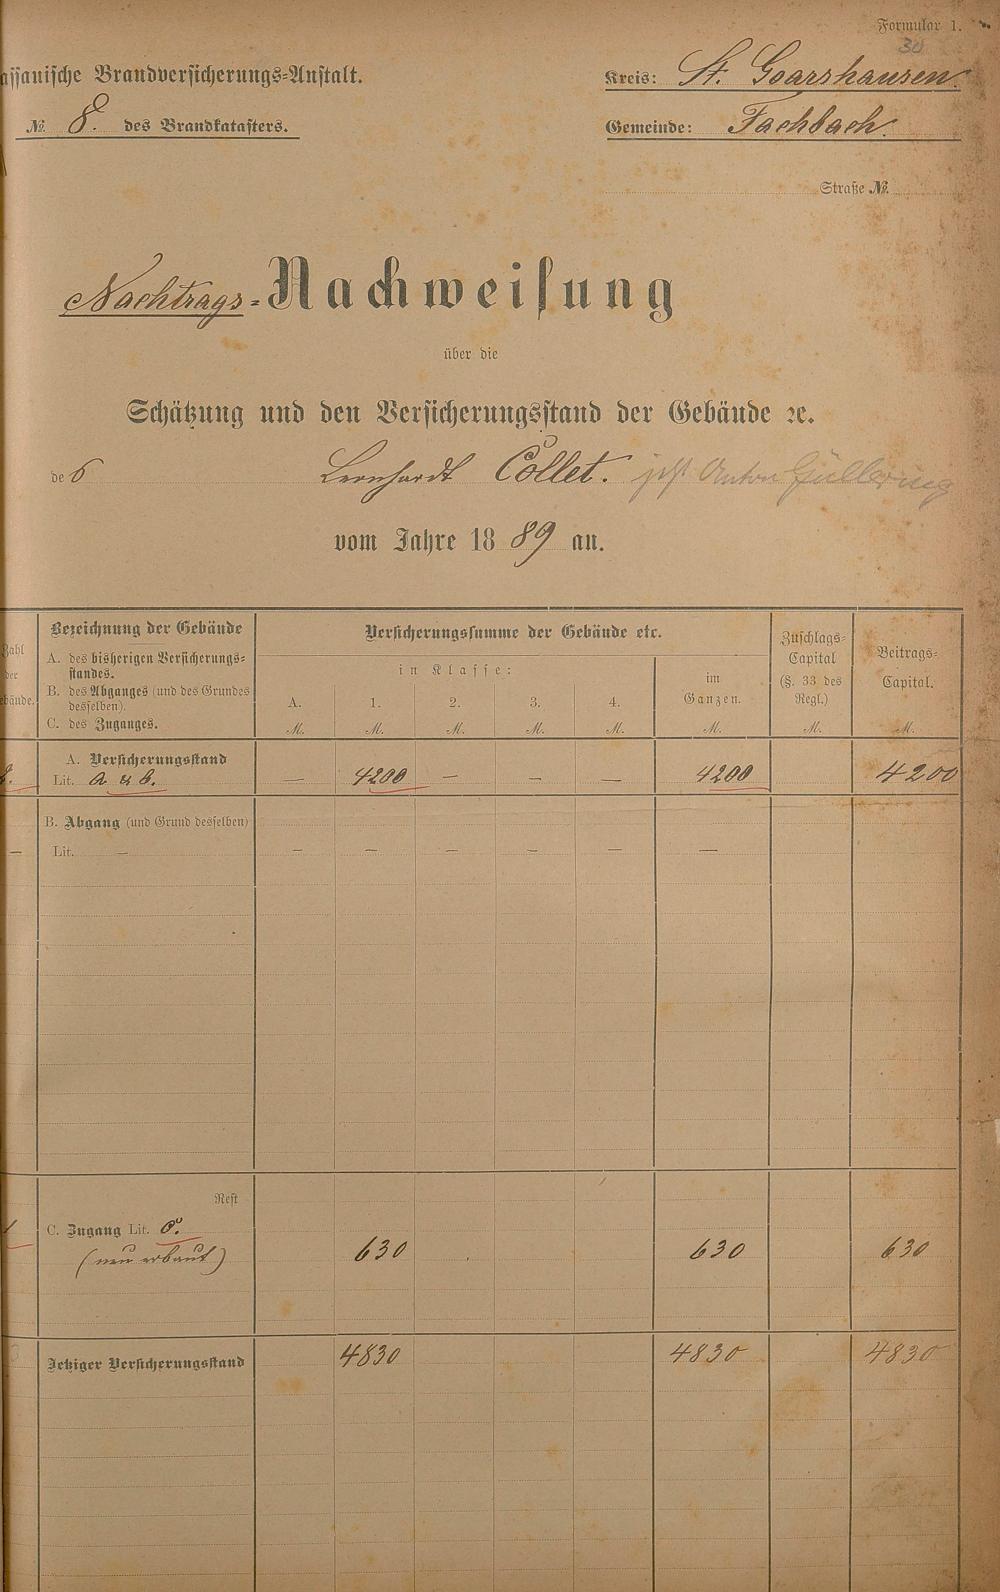 Formular 1.
30
assauische Brandversicherungs-Anstalt.
Kreis: St. Goarshausen.
№ 8. des Brandkatasters.
Gemeinde: Fachbach.
Straße №.
Nachtrags-Nachweisung
über die
Schätzung und den Versicherungsstand der Gebäude ꝛc.
de s Leonhardt Collet. jetzt Anton Güllering
vom Jahre 18 89 an.
Zahl der Gebäude.
Bezeichnung der Gebäude
A. des bisherigen Versicherungs-
standes.
B. des Abganges (und des Grundes
desselben).
C. des Zuganges.
Versicherungssumme der Gebäude etc.
in Klasse:
A. 1. 2. 3. 4.
im
Ganzen.
Zuschlags-
Capital
(§. 33 des
Regl.)
Beitrags-
Capital.
M. M. M. M. M. M. M. M.
A. Versicherungsstand
2. Lit. a. u b. — 4200 — — — 4200 4200
B. Abgang (und Grund desselben)
— Lit. — — — — — — —
Rest
1 C. Zugang Lit. c.
(neu erbaut) 630 630 630
3 Jetziger Versicherungsstand 4830 4830 4830